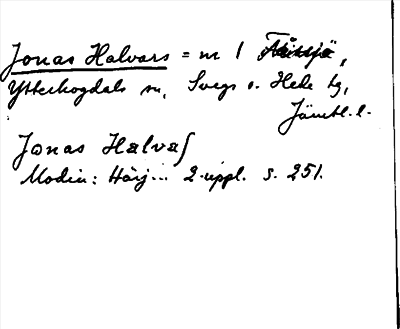 Jonas Halvars = m /
Ytterhogdals sn, Svegs o. Hede tg,
Jämtl. l.
Jonas Halvas
Modin: Härj... 2. uppl. s. 251.